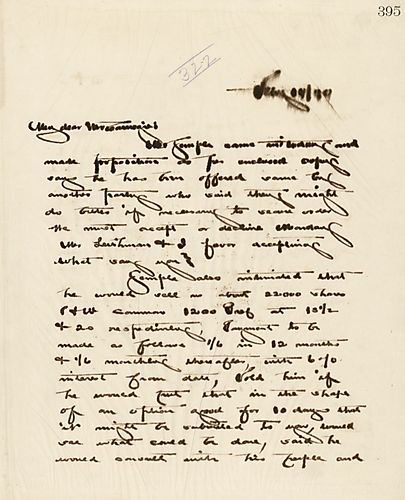 395
322
My dear Mr Carnegie
Mr Temple came in today and
made proposition as per enclosed copy
says he has been offered same by
another party who said they might
do better if necessary to secure order
He must accept or decline Monday
Mr Leishman & I favor accepting
What say you?
Temple also intimated that
he would sell us about 22000 shares
P&W Common 1200 Pref at 13½
& 20 respectively, Payment to be
made as follows 1/6 in 12 months
& 1/6 monthly thereafter, with 6%
interest from date, Told him if
he would put that in the shape
of an option good for 10 days that
it might be submitted to you, would
see what could be done, said he
would consult with his people and